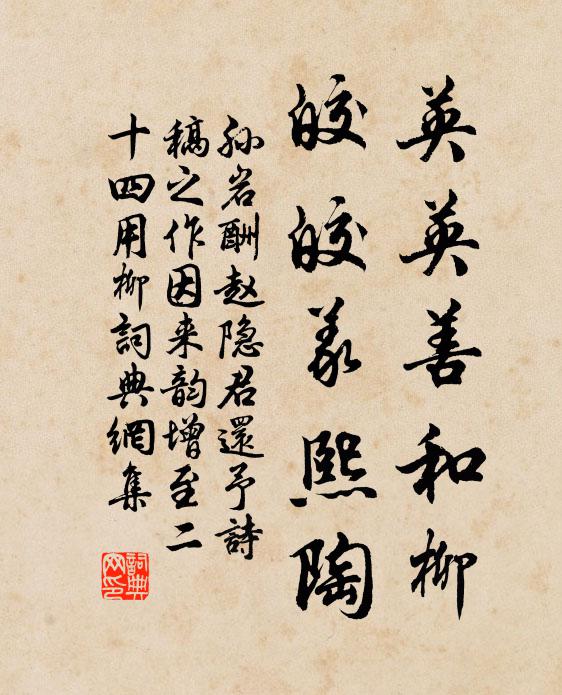 英英善和柳
皎皎羲熙陶
孙岩酬赵隐君還予詩
稿之作因来韵增至二
十四用柳詞典網集
詞典
网印